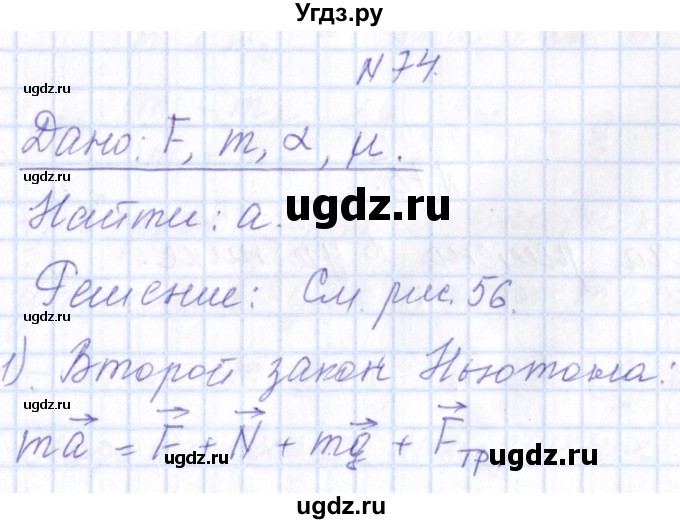 Угдз.ру
N 74.
ugdz.ru ugdz.ru
Дано: F, m, α, μ.
ugdz.ru
Найти: a. ugdz.ru
Решение: См. рис. 56.
ugdz.ru ugdz.ru
1). Второй закон Ньютона:
ugdz.ru
ma⃗ = F⃗ + N⃗ + mg⃗ + F⃗тр.
ugdz.ru ugdz.ru
ugdz.ru